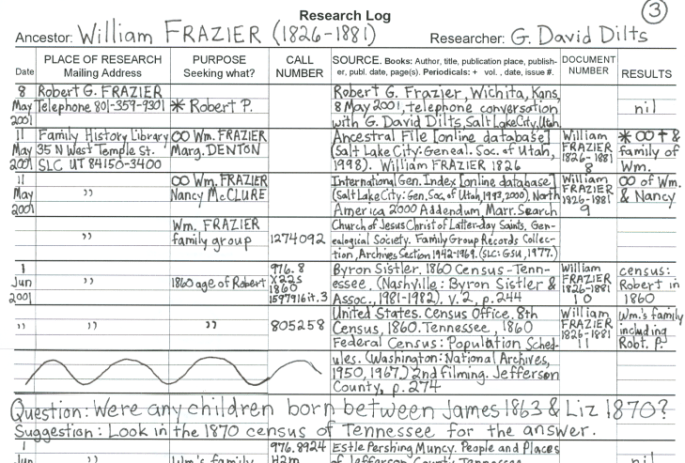 3
Research Log
Ancestor: William FRAZIER (1826-1881) Researcher: G. David Dilts
Date
PLACE OF RESEARCH
Mailing Address
PURPOSE
Seeking what?
CALL
NUMBER
SOURCE. Books: Author, title, publication place, publish-
er, publ. date, page(s). Periodicals: + vol. , date, issue #.
DOCUMENT
NUMBER
RESULTS
8
May
2001
Robert G. FRAZIER
Telephone 801-359-9301
* Robert P.
Robert G. Frazier, Wichita, Kans,
8 May 2001, telephone conversation
with G. David Dilts, Salt Lake City, Utah
nil
11
May
2001
Family History Library
35 N West Temple St.
SLC UT 84150-3400
OO Wm. FRAZIER
Marg. DENTON
Ancestral File [online database]
(Salt Lake City: Geneal. Soc. of Utah,
1998). William FRAZIER 1826
William
FRAZIER
1826-1881
8
* OO † &
family of
Wm.
11
May
2001
"
OO Wm. FRAZIER
Nancy McCLURE
International Gen. Index [online database]
(Salt Lake City: Gen. Soc. of Utah, 1993, 2000). North
America 2000 Addendum, Marr. Search
William
FRAZIER
1826-1881
9
OO of Wm.
& Nancy
"
Wm. FRAZIER
family group
1274092
Church of Jesus Christ of Latter-day Saints, Gen-
ealogical Society. Family Group Records Collec-
tion, Archives Section 1942-1969. (SLC: GSU, 1977.)
1
Jun
2001
"
1860 age of Robert
976.8
X22s
1860
1597916 it.3
Byron Sistler. 1860 Census-Tenn-
essee. (Nashville: Byron Sistler &
Assoc., 1981-1982). v.2, p.244
William
FRAZIER
1826-1881
10
census:
Robert in
1860
"
"
"
805258
United States. Census Office. 8th
Census, 1860. Tennessee, 1860
Federal Census: Population Sched-
ules. (Washington: National Archives,
1950, 1967.) 2nd filming. Jefferson
County, p.274
William
FRAZIER
1826-1881
11
Wm.'s family
including
Robt. P.
Question: Were any children born between James 1863 & Liz 1870?
Suggestion: Look in the 1870 census of Tennessee for the answer.
1
Jun
"
Wm.'s family
976.8924
H2m
Estle Pershing Muncy. People and Places
of Jefferson County Tennessee
nil